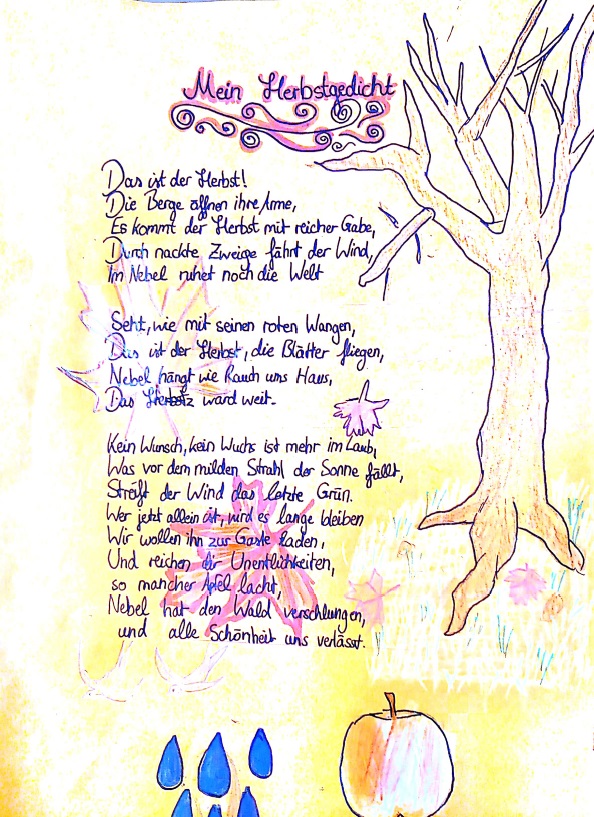 Mein Herbstgedicht
Das ist der Herbst!
Die Berge öffnen ihre Arme,
Es kommt der Herbst mit reicher Gabe,
Durch nackte Zweige fährt der Wind,
Im Nebel ruhet noch die Welt
Seht, wie mit seinen roten Wangen,
Das ist der Herbst, die Blätter fliegen,
Nebel hängt wie Rauch ums Haus,
Das Herz ward weit.
Kein Wunsch, kein Wuchs ist mehr im Laub,
Was vor dem milden Strahl der Sonne fällt,
Streift der Wind das letzte Grün.
Wer jetzt allein ist, wird es lange bleiben
Wir wollen ihn zur Gaste laden,
Und reichen dir Unentlichkeiten,
so mancher Apfel lacht,
Nebel hat den Wald verschlungen,
und alle Schönheit uns verlässt.